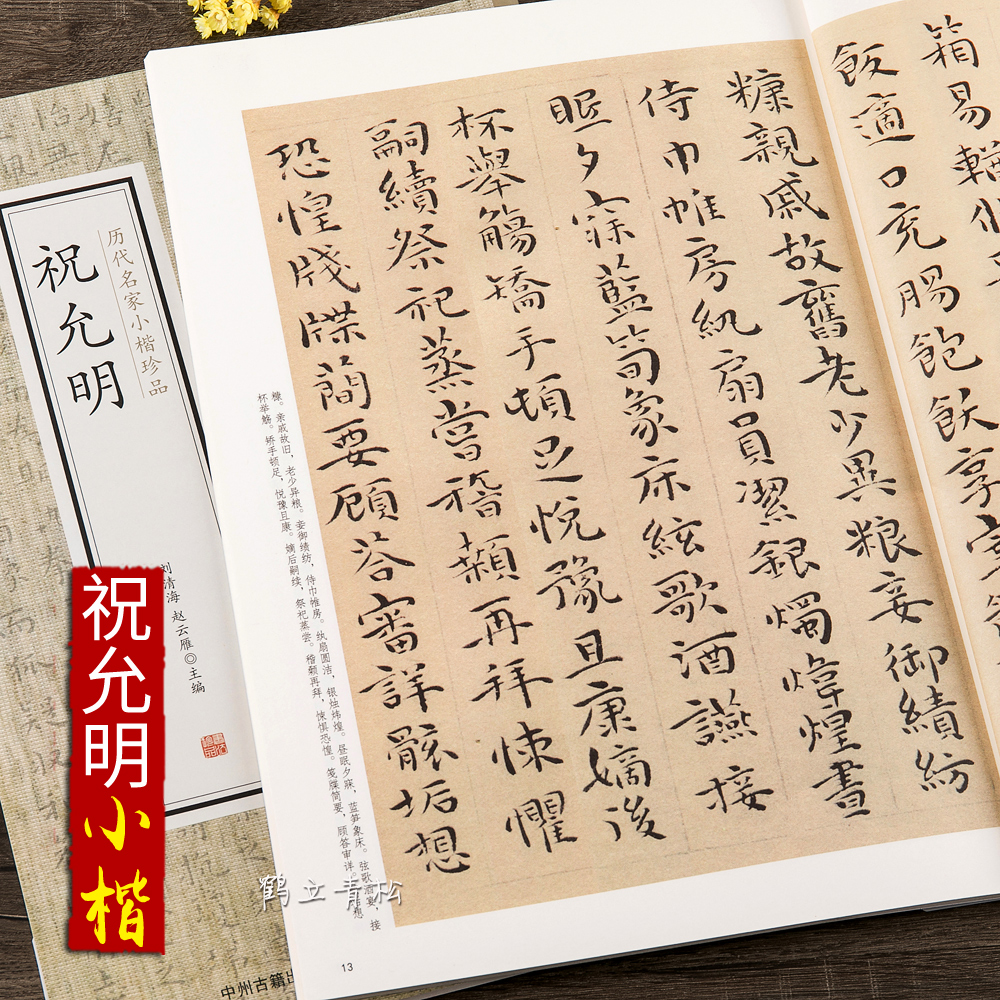 箱易輶
飯適口充腸飽飫享宰
糠親戚故舊老少異粮妾御績紡
侍巾帷房紈扇員潔銀燭煒煌晝
眠夕寐藍筍象床絃歌酒讌接
杯舉觴矯手頓足悅豫且康嫡後
嗣續祭祀蒸嘗稽顙再拜悚懼
恐惶牋牒簡要顧荅審詳骸垢想
糠。亲戚故旧，老少异粮。妾御绩纺，侍巾帷房。纨扇圆洁，银烛炜煌。昼眠夕寐，蓝笋象床。弦歌酒宴，接
杯举觞。矫手顿足，悦豫且康。嫡后嗣续，祭祀蒸尝。稽颡再拜，悚惧恐惶。笺牒简要，顾答审详。垢想
13
历代名家小楷珍品
祝允明
刘清海 赵云雁◎主编
中州古籍出
祝允明小楷
鹤立青松